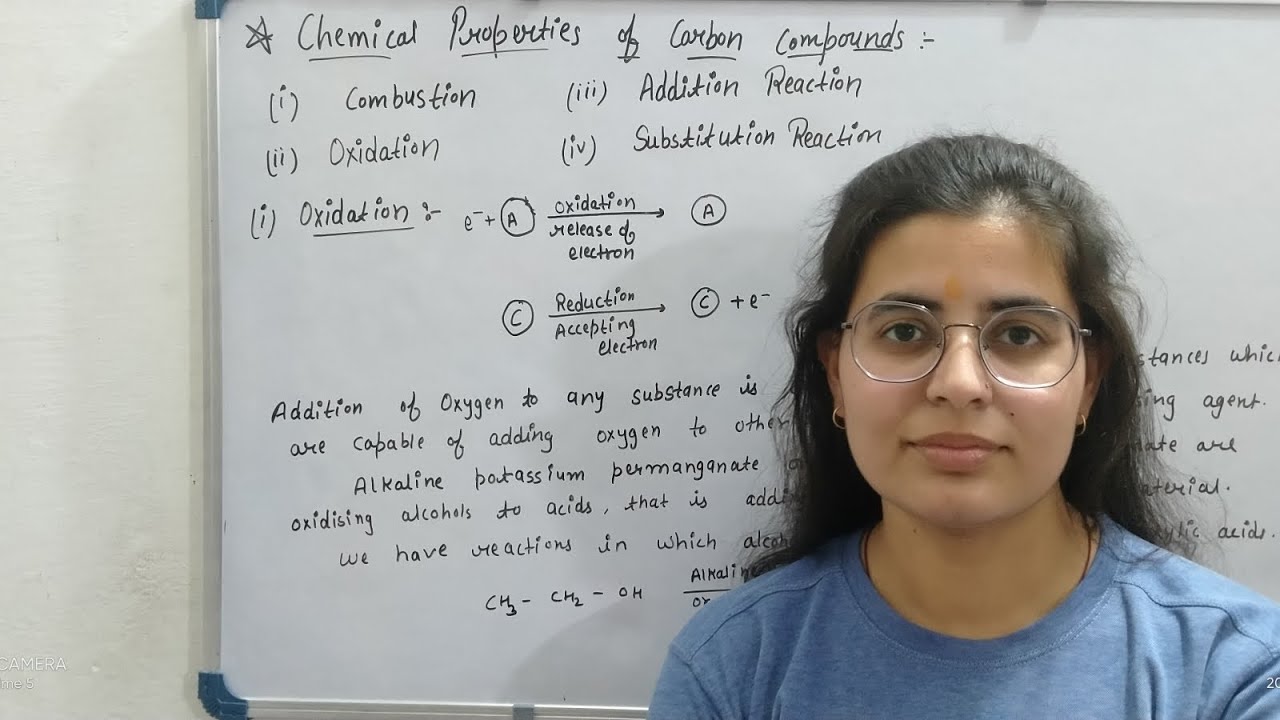 ☆ Chemical Properties of Carbon Compounds :-
(i) Combustion (iii) Addition Reaction
(ii) Oxidation (iv) Substitution Reaction
(i) Oxidation :- e⁻ + A oxidation A
release of
electron
C Reduction C + e⁻
Accepting
electron
Addition of Oxygen to any substance is stances which
are capable of adding oxygen to other ing agent.
Alkaline potassium permanganate nate are
oxidising alcohols to acids, that is addi aterial.
We have reactions in which alcoh ylic acids.
CH₃ - CH₂ - OH Alkaline
or
CAMERA
me 5
20